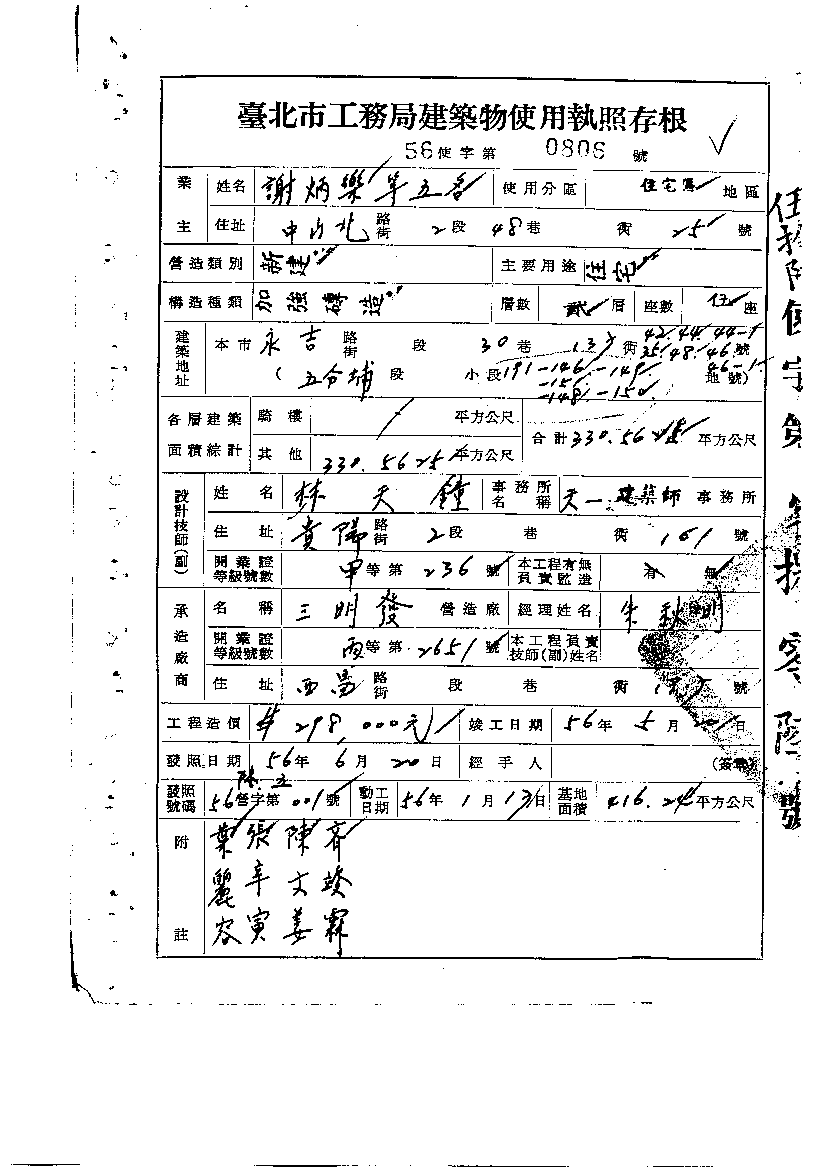 臺北市工務局建築物使用執照存根
56使字第 0806 號
業主 姓名 謝炳樂等五名 使用分區 住宅 地區
住址 中山北路街 2段 48巷 衖 25號
營造類別 新建 主要用途 住宅
構造種類 加強磚造 層數 貳層 座數 伍座
建築地址 本市 永吉路街 段 30巷 衖 42.44.44-1 號
35.48.46.
46-1
( 五分埔段 小段 191-146. -149. 地號)
-151.
-148. -150.
各層建築面積綜計 騎樓 / 平方公尺 合計 330.5625 平方公尺
其他 330.5625 平方公尺
設計技師(副) 姓名 林天鐘 事務所名稱 天一建築師事務所
住址 貴陽路街 2段 巷 衖 161號
開業證等級號數 甲等第 236 號 本工程有無負責監造 有 無
承造廠商 名稱 三明發營造廠 經理姓名 朱秋明
開業證等級號數 丙等第 2651 號 本工程負責技師(副)姓名
住址 西昌路街 段 巷 衖 號
工程造價 # 298,000元 竣工日期 56年 5月 日
發照日期 56年 6月 20日 經手人 (簽章)
發照號碼 56營字第 001號 動工日期 56年 1月 13日 基地面積 416.24 平方公尺
附註 葉 張 陳 齊
麗 辛 文 竣
容 寅 姜 霖
伍拾陸使字第 零陸 號